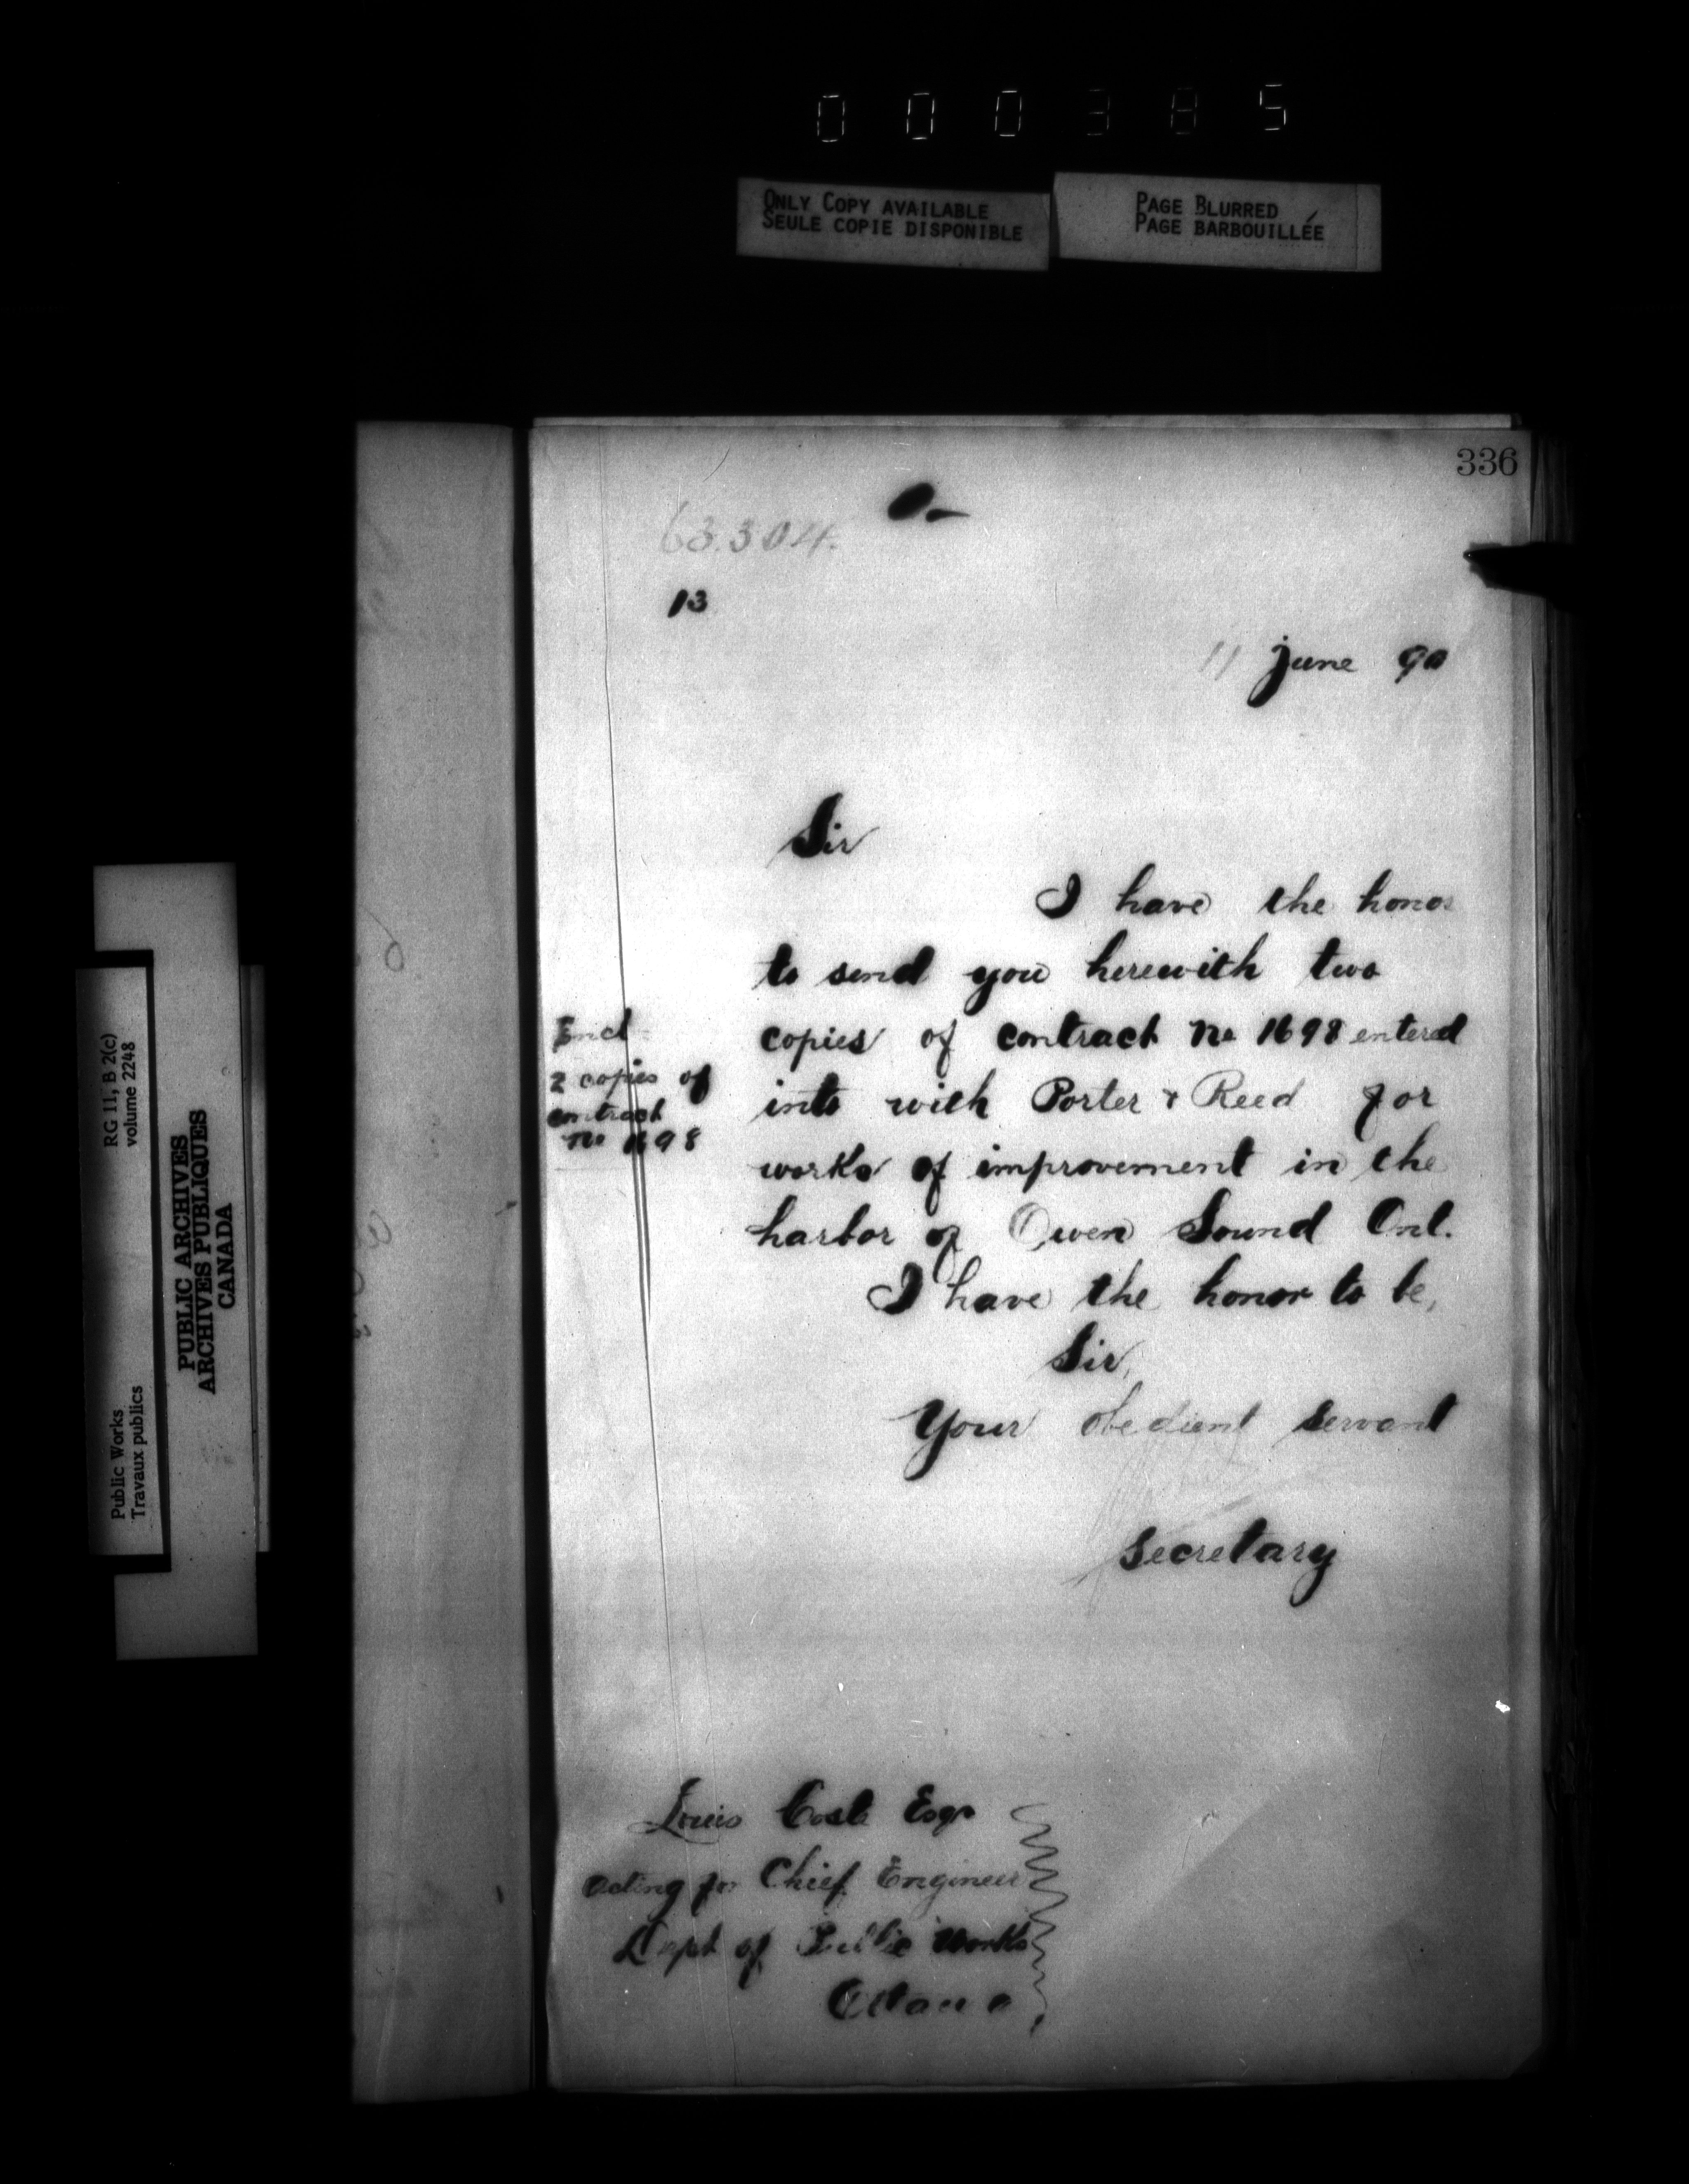 000385
ONLY COPY AVAILABLE
SEULE COPIE DISPONIBLE
PAGE BLURRED
PAGE BARBOUILLÉE
336
63.304.
13
11 June 90
Sir
I have the honor
to send you herewith two
copies of contract no 1698 entered
into with Porter & Reed for
works of improvement in the
harbor of Owen Sound Ont.
I have the honor to be,
Sir,
Your obedient servant
Secretary
Encl
2 copies of
contract
no 1698
Louis Coste Esqr
acting for Chief Engineer
Dept of Public Works
Ottawa
Public Works
Travaux publics
RG 11, B 2(c)
volume 2248
PUBLIC ARCHIVES
ARCHIVES PUBLIQUES
CANADA